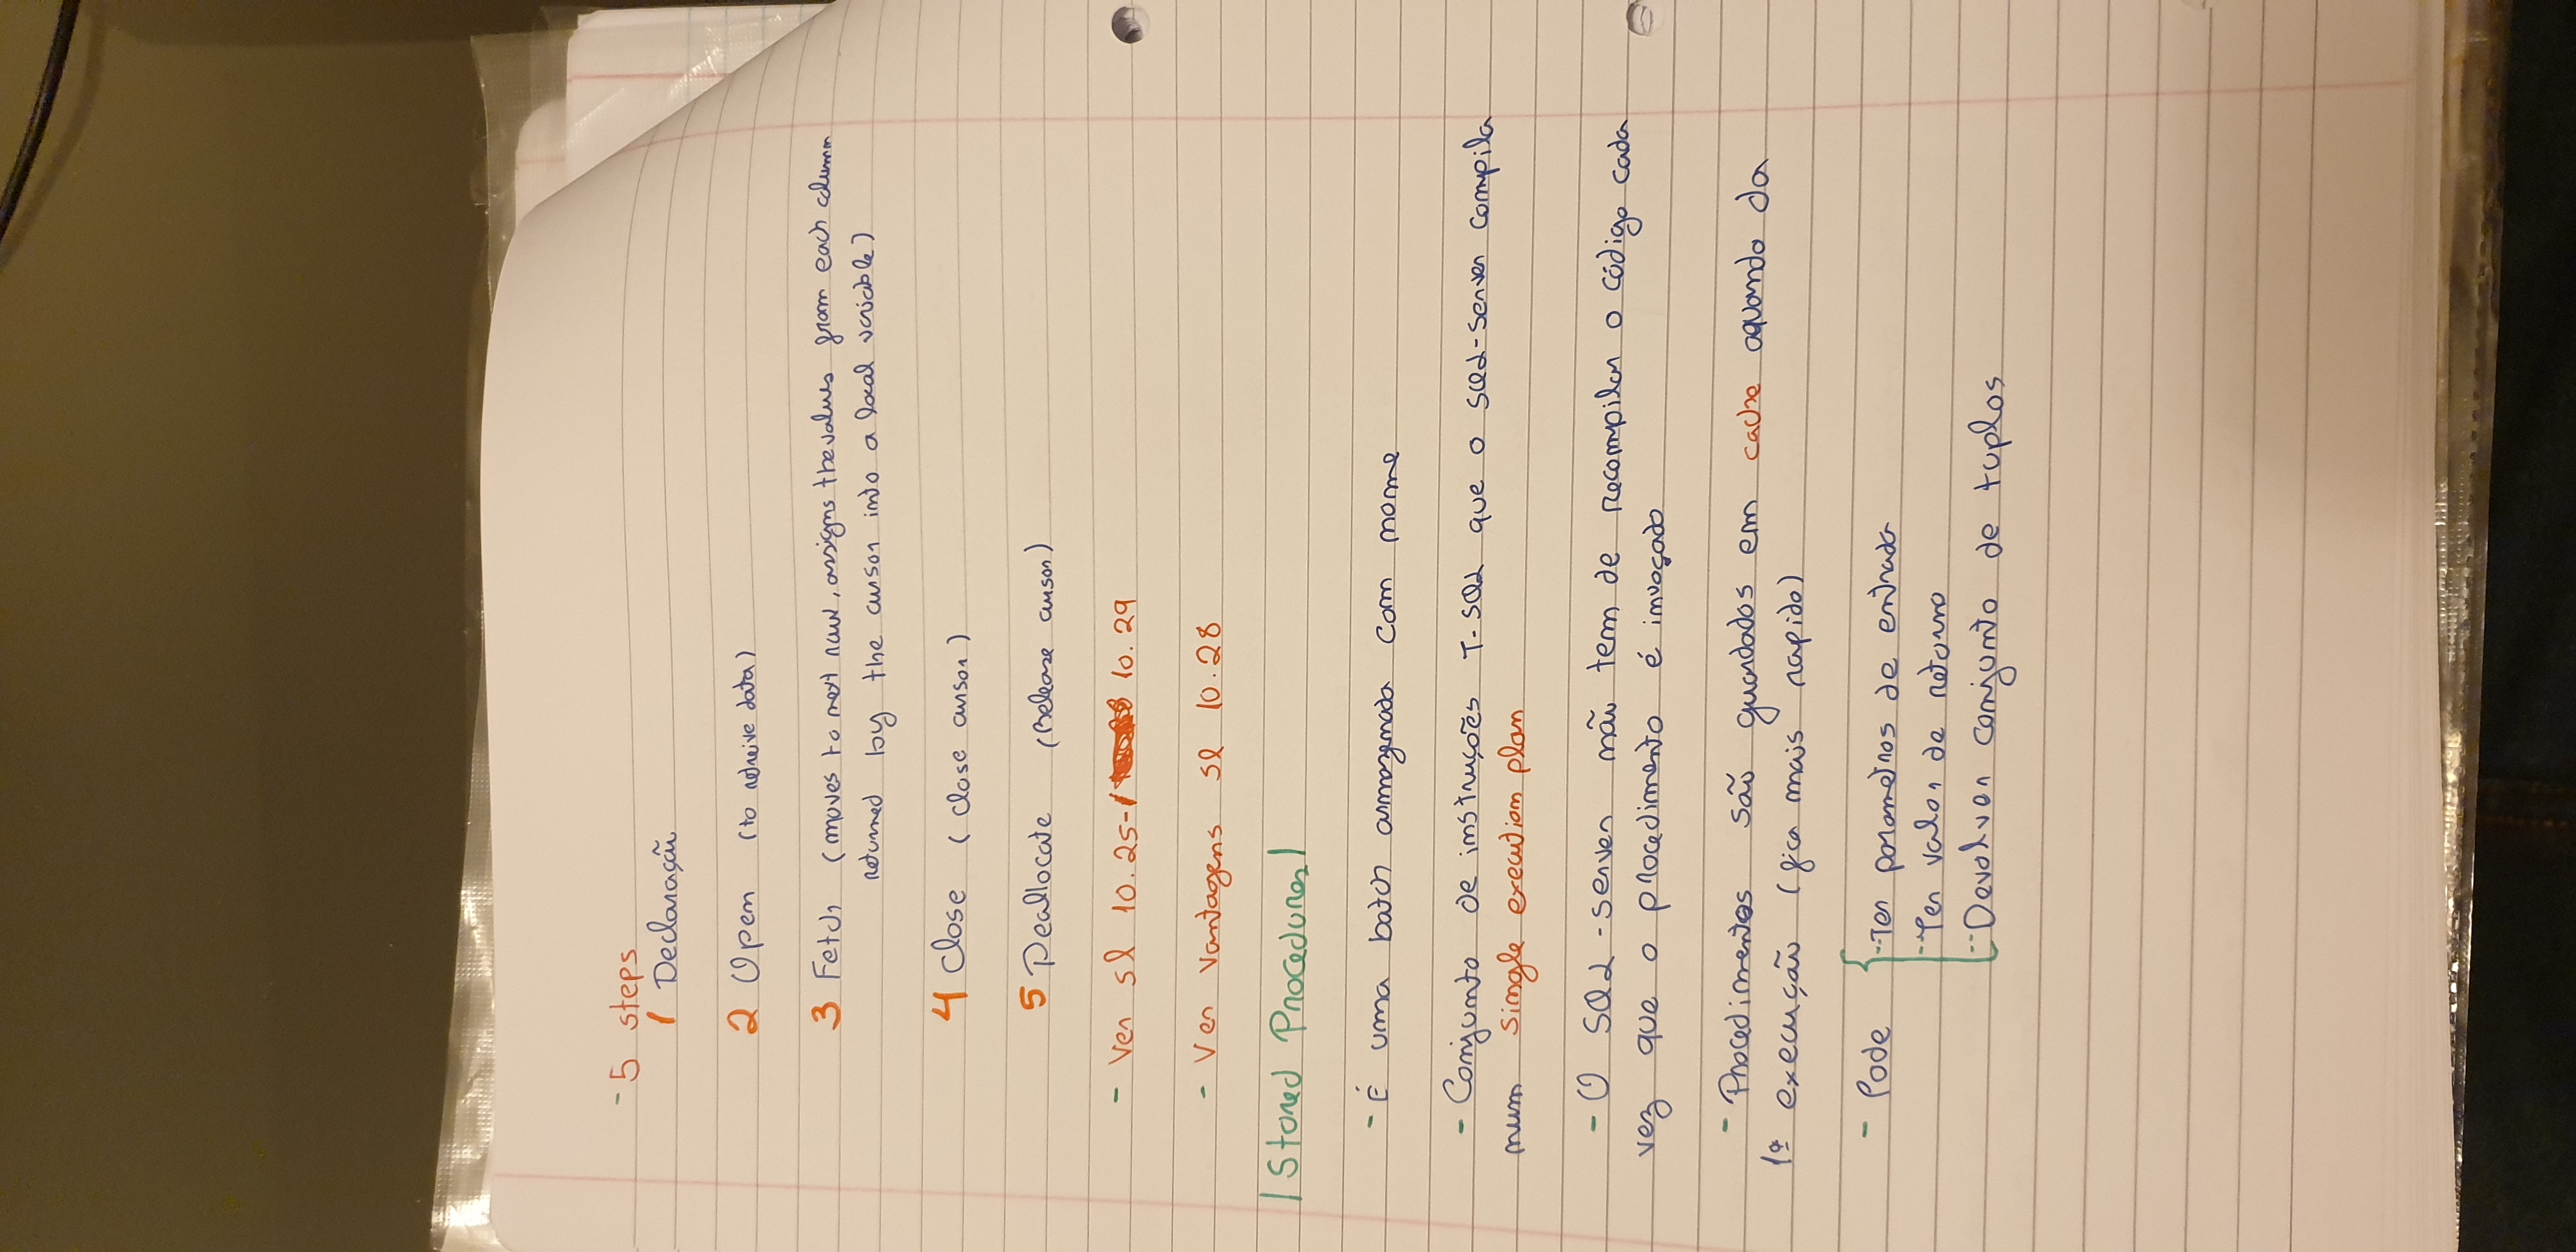 - 5 steps
1 Declaração
2 Open (to retreive data)
3 Fetch (moves to next row, assigns the values from each column
returned by the cursor into a local variable)
4 Close (close cursor)
5 Deallocate (Release cursor)
- Ver sl 10.25- 10.29
- Ver vantagens sl 10.28
|Stored Procedures|
- É uma batch armazenada com nome
- Conjunto de instruções T-SQL que o SQL-Server compila
num single execution plan
- O SQL-server não tem de recompilar o código cada
vez que o procedimento é invocado
- Procedimentos são guardados em cache aquando da
1ª execução (fica mais rapido)
- Pode { -- Ter parametros de entrada
-- Ter valor de retorno
-- Devolver conjunto de tuplos